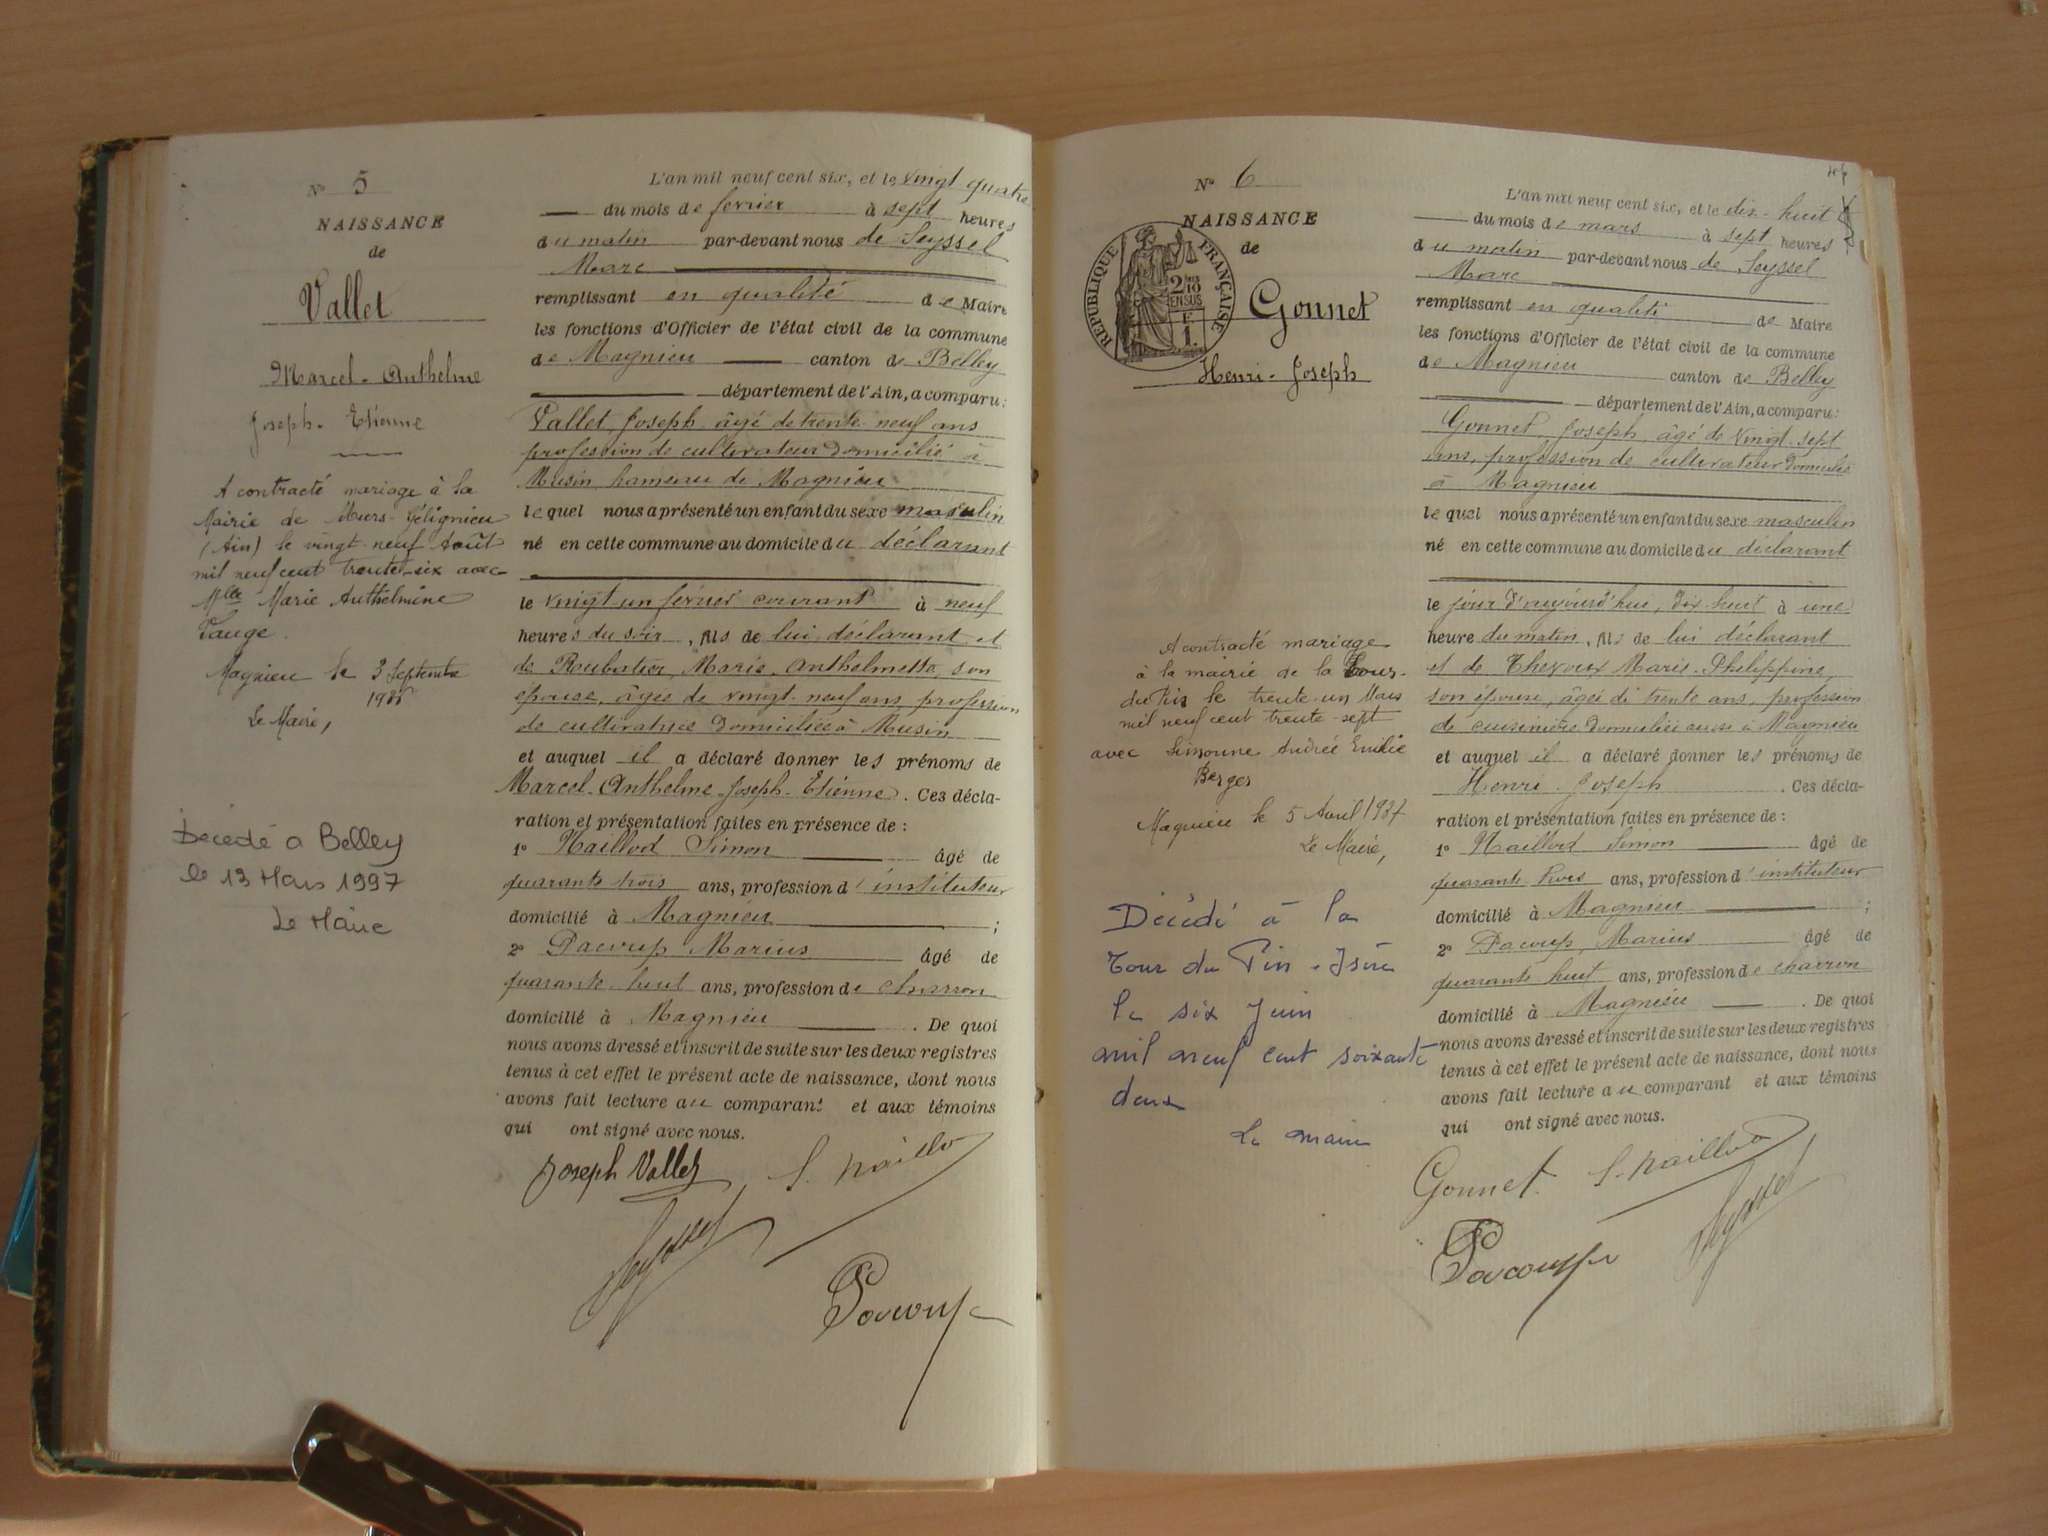 N° 5
NAISSANCE
de
Vallet
Marcel-Anthelme
Joseph-Etienne
A contracté mariage à la
Mairie de Murs-Gélignieu
(Ain) le vingt-neuf Août
mil neuf cent trente-six avec
Mlle Marie Anthelmine
Magnieu le 3 Septembre
Le Maire,
Décédé a Belley
le 13 Mars 1997
Le Maire
L'an mil neuf cent six, et le vingt quatre
du mois de fevrier à sept heures
du matin par-devant nous de Seyssel
Marc
remplissant en qualité de Maire
les fonctions d'Officier de l'état civil de la commune
de Magnieu canton de Belley
département de l'Ain, a comparu :
Vallet, Joseph, âgé de trente-neuf ans
profession de cultivateur domicilié à
Musin hameau de Magnieu
lequel nous a présenté un enfant du sexe masculin
né en cette commune au domicile du déclarant
le vingt-un février courant à neuf
heures du soir, fils de lui déclarant et
de Marie-Anthelmette, son
épouse, âgée de vingt-neuf ans, profession
de cultivatrice domiciliée à Musin
et auquel il a déclaré donner les prénoms de
Marcel-Anthelme-Joseph-Etienne. Ces décla-
ration et présentation faites en présence de :
1° Naillod Simon âgé de
quarante trois ans, profession d'instituteur
domicilié à Magnieu ;
2° Pacoup Marius âgé de
quarante-huit ans, profession de charron
domicilié à Magnieu . De quoi
nous avons dressé et inscrit de suite sur les deux registres
tenus à cet effet le présent acte de naissance, dont nous
avons fait lecture au comparant et aux témoins
qui ont signé avec nous.
Joseph Vallet S. Naillod
Seyssel
Pacoup
N° 6
NAISSANCE
de
RÉPUBLIQUE FRANÇAISE
2/10
EN SUS
F
1.
Gonnet
Henri-Joseph
A contracté mariage
à la mairie de la Tour-
du Pin le trente-un Mars
mil neuf cent trente-sept
avec Simonne Andrée Emilie
Berger
Magnieu le 5 Avril 1937
Le Maire,
Décédé à la
Tour du Pin - Isère
le six Juin
mil neuf cent soixante
deux
Le maire
L'an mil neuf cent six, et le dix-huit
du mois de mars à sept heures
du matin par-devant nous de Seyssel
Marc
remplissant en qualité de Maire
les fonctions d'Officier de l'état civil de la commune
de Magnieu canton de Belley
département de l'Ain, a comparu :
Gonnet, Joseph, âgé de vingt-sept
ans, profession de cultivateur domicilié
à Magnieu
lequel nous a présenté un enfant du sexe masculin
né en cette commune au domicile du déclarant
le jour d'aujourd'hui, dix-huit à une
heure du matin, fils de lui déclarant
et de Marie-Philippine,
son épouse, âgée de trente ans, profession
de cuisinière domiciliée aussi à Magnieu
et auquel il a déclaré donner les prénoms de
Henri-Joseph . Ces décla-
ration et présentation faites en présence de :
1° Naillod Simon âgé de
quarante trois ans, profession d'instituteur
domicilié à Magnieu ;
2° Pacoup, Marius âgé de
quarante huit ans, profession de charron
domicilié à Magnieu . De quoi
nous avons dressé et inscrit de suite sur les deux registres
tenus à cet effet le présent acte de naissance, dont nous
avons fait lecture au comparant et aux témoins
qui ont signé avec nous.
Gonnet S. Naillod
Seyssel
Pacoup